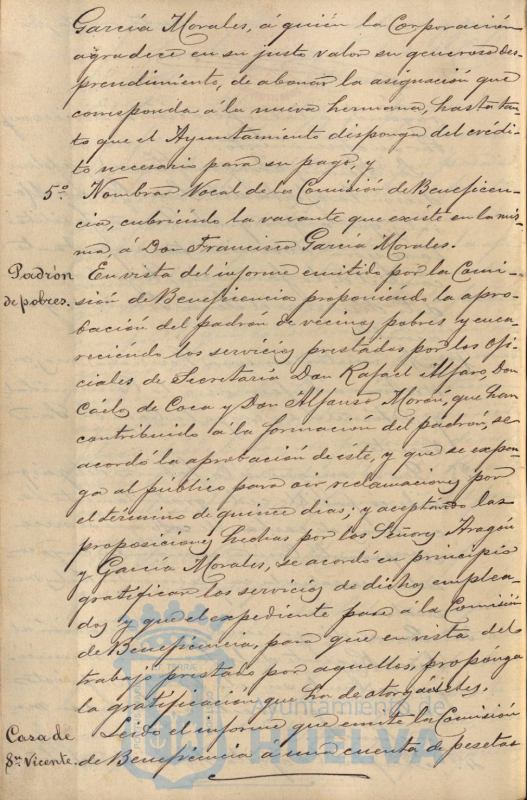 García Morales, á quién la Corporación
agradece en su justo valor su generoso des-
prendimiento, de abonar la asignación que
corresponda á la nueva hermana, hasta tan-
to que el Ayuntamiento disponga del crédi-
to necesario para su pago, y
5º. Nombrar Vocal de la Comisión de Beneficen-
cia, cubriéndo la vacante que existe en la mis-
ma, á Don Francisco García Morales.
Padrón de pobres.
En vista del informe emitido por la Comi-
sión de Beneficencia proponiéndo la apro-
bación del padrón de vecinos pobres y enca-
reciéndo los servicios prestados por los Ofi-
ciales de Secretaría Don Rafael Alfaro, Don
Cárlos de Coca y Don Alfonso Morón, que han
contribuido á la formación del padrón, se
acordó la aprobación de éste, y que se expon-
ga al público para oir reclamaciones por
el término de quince dias; y aceptándo las
proposiciones hechas por los Señores Aragón
y García Morales, se acordó en principio
gratificar los servicios de dichos emplea-
dos y que el expediente pase á la Comisión
de Beneficencia, para que en vista del
trabajo prestado por aquellos, propónga
la gratificación que ha de otorgárseles.
Casa de Sn. Vicente.
Leido el informe que emite la Comisión
de Beneficencia á una cuenta de pesetas
Ayuntamiento de
HUELVA